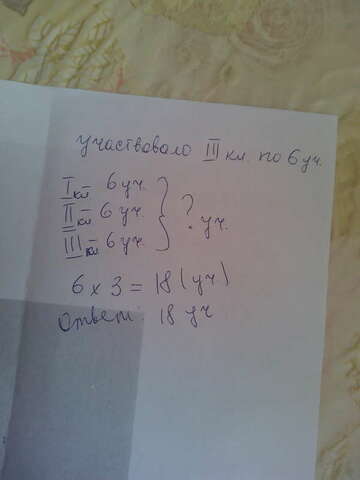 участвовало III кл. по 6 уч.
I кл 6 уч.
II кл 6 уч.
III кл 6 уч.
? уч.
6 × 3 = 18 (уч)
Ответ: 18 уч